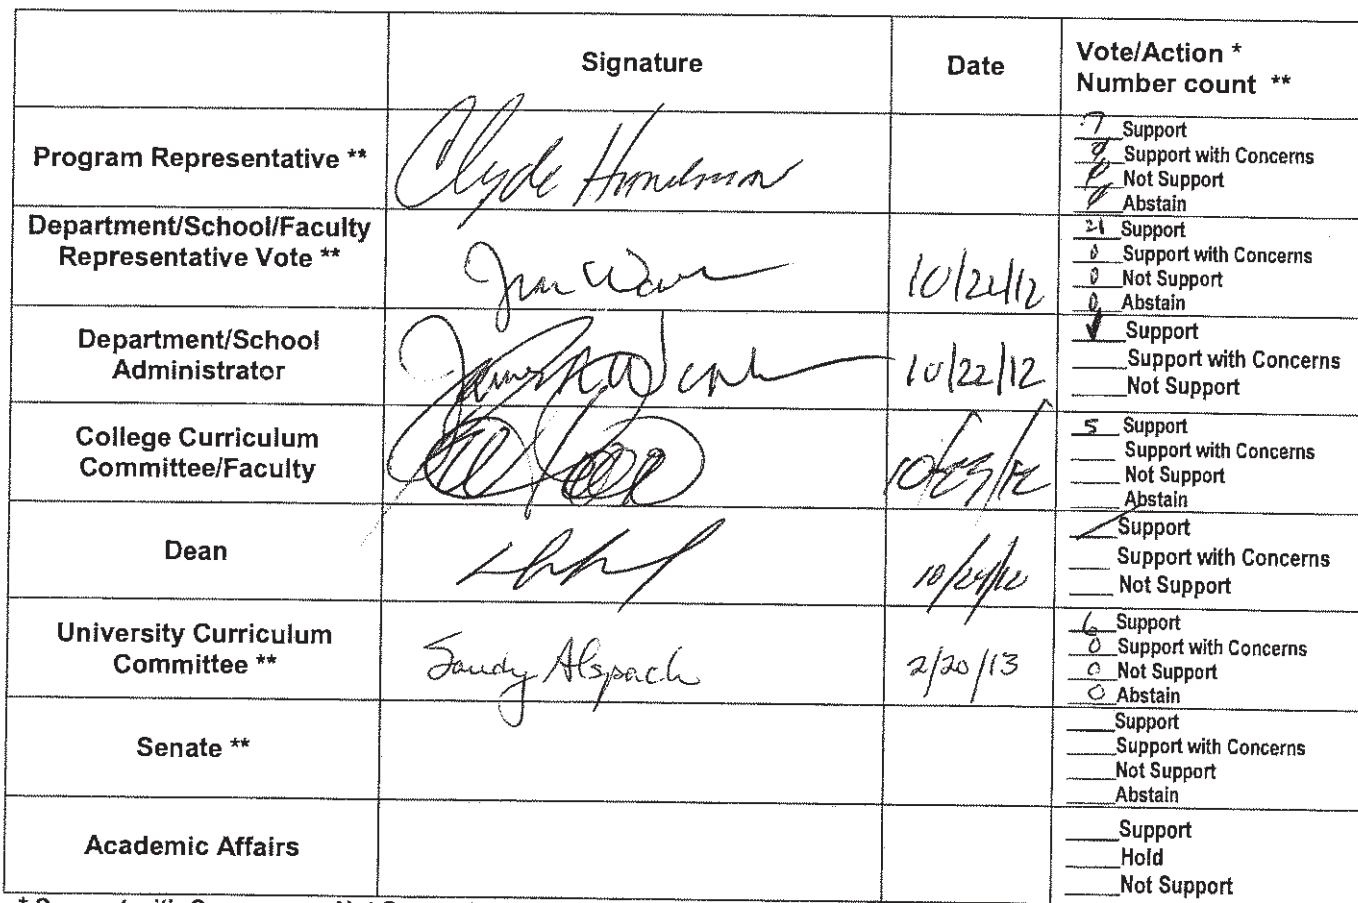 Signature
Date
Vote/Action *
Number count **
Program Representative **
Clyde
7 Support
0 Support with Concerns
0 Not Support
0 Abstain
Department/School/Faculty
Representative Vote **
10/22/12
21 Support
0 Support with Concerns
0 Not Support
0 Abstain
Department/School
Administrator
James
10/22/12
Support
Support with Concerns
Not Support
College Curriculum
Committee/Faculty
5 Support
Support with Concerns
Not Support
Abstain
Dean
Support
Support with Concerns
Not Support
University Curriculum
Committee **
Sandy Alspach
2/20/13
6 Support
0 Support with Concerns
0 Not Support
0 Abstain
Senate **
Support
Support with Concerns
Not Support
Abstain
Academic Affairs
Support
Hold
Not Support